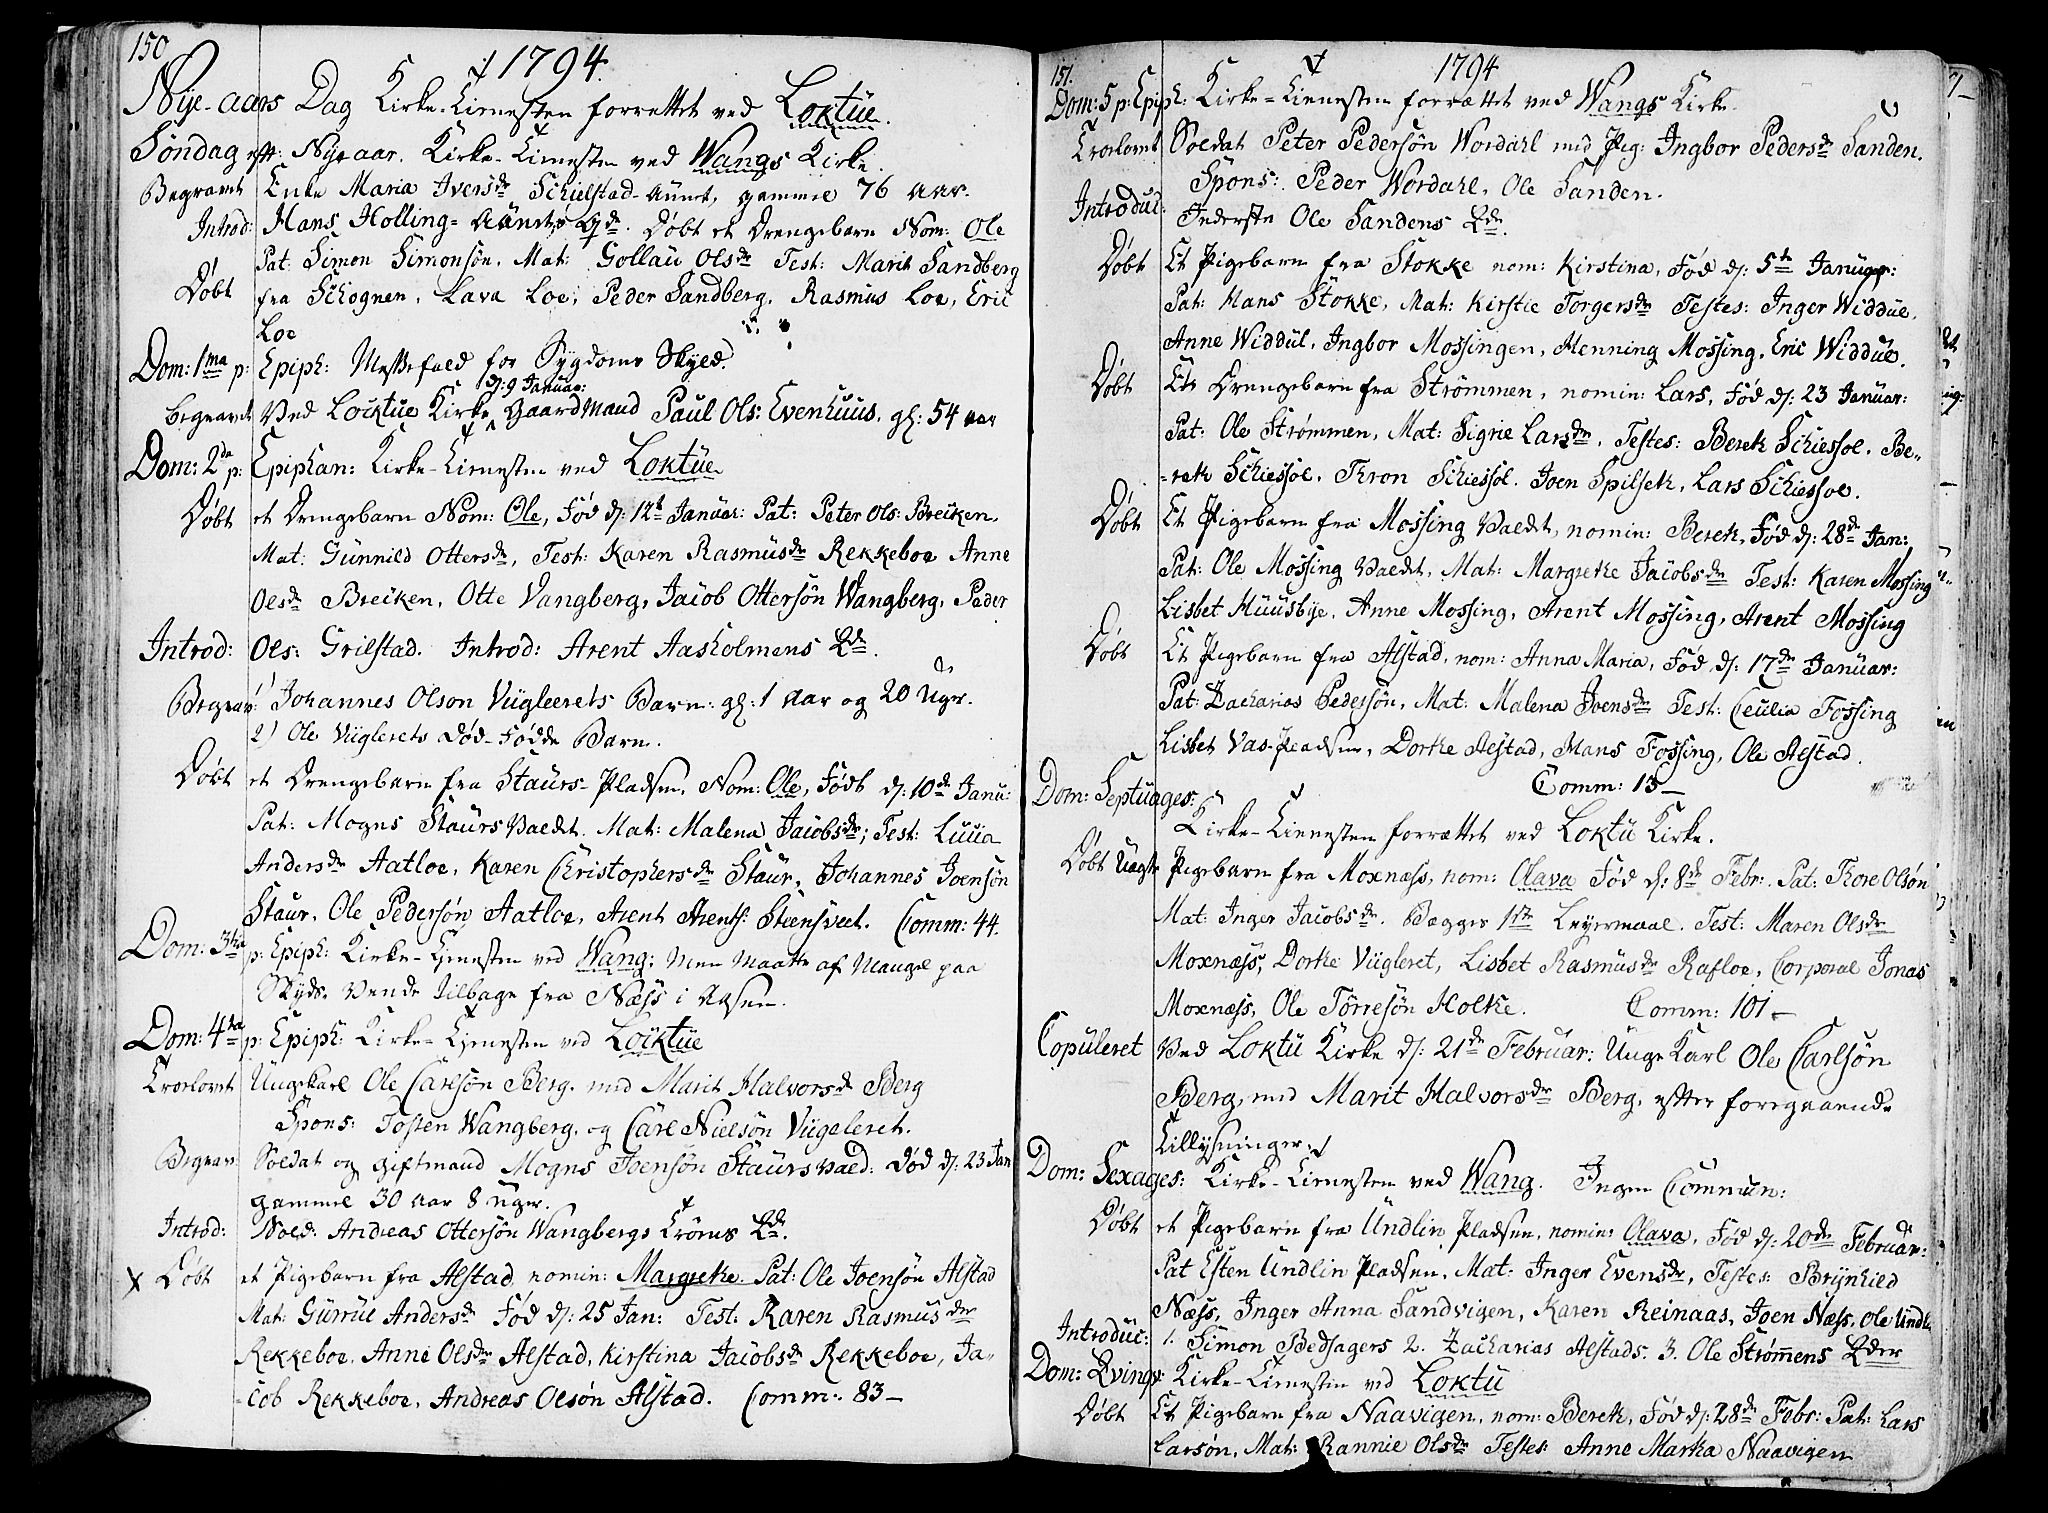 150
1794.
Nye-aars Dag Kirke-Tienesten forrettet ved Loktüe.
Søndag eft: Nyeaar. Kirke-Tienesten ved Wangs Kirke.
Begravet Enke Maria Ivers<sup>dr</sup> Schielstad-Aünet, gammel 76 aar.
Introd: Hans Holling- Qv<sup>de</sup>. Døbt et Drengebarn Nom: Ole
Døbt Pat: Simon Simonsøn. Mat: Gollau Ols<sup>dr</sup> Test: Marit Sandberg
fra Schognen, Lava Loe, Peder Sandberg, Rasmus Loe, Eric
Loe
Dom: 1<sup>ma</sup> p: Epiph: Messefald for Sygdoms Skyld.
d: 9 Januar:
begravet Ved Locktue Kirke Gaardmand Paul Ols: Evenhuus. gl: 54 aar
Dom: 2<sup>da</sup> p: Epiphan: Kirke-Tienesten ved Loktüe
Døbt et Drengebarn Nom: Ole, Fød d: 12<sup>t</sup> Januar: Pat: Peter Ols: Breiken.
Mat: Günnild Otters<sup>dr</sup>, Test: Karen Rasmüs<sup>dr</sup> Rekkeboe Anne
Ols<sup>dr</sup> Breiken, Otte Vangberg, Jacob Ottersøn Wangberg, Peder
Introd: Ols: Grilstad. Introd: Arent Aasholmens Qv<sup>de</sup>.
Begrav: Johannes Olson Viigleerets Barn: gl: 1 Aar og 20 Uger.
2) Ole Viiglerets Død-Fødde Barn.
Døbt et Drengebarn fra Staurs-Pladsen, Nom: Ole, Født d: 10<sup>de</sup> Janu:
Pat: Mogns Staurs Valdt. Mat: Malena Jacobs<sup>dr</sup>; Test: Lucia
Anders<sup>dr</sup> Aatloe, Karen Christophers<sup>dr</sup> Staur, Johannes Joensøn
Staur, Ole Pedersøn Aatloe, Arent Arents: Steensvedt. Comm: 44.
Dom: 3<sup>tia</sup> p: Epiph: Kirke-Tienesten ved Wang; Men Maatte af Mangel paa
Skyds Vende tilbage fra Næss i Aasen.
Dom: 4<sup>ta</sup> p: Epiph: Kirke-Tienesten ved Locktüe
Trorlovet Ungekarl Ole Carlsøn Berg, med Marit Halvors<sup>dr</sup> Berg
Spons: Tosten Wangberg, og Carl Nielsøn Viigeleret.
Begrav: Soldat og giftmand Mogns Joensøn Staurs vald: Død d: 23 Jan
gammel 30 aar 8 Uger.
Introd: Nold: Andreas Ottersøn Wangbergs Qv<sup>de</sup>.
x Døbt et Pigebarn fra Alstad nomin: Margrethe. Pat: Ole Joensøn Alstad
Mat: Gürrue Anders<sup>dr</sup> Fød d: 25 Jan: Test: Karen Rasmus<sup>dr</sup>
Rekkeboe, Anne Ols<sup>dr</sup> Alstad, Kirstina Jacobs<sup>dr</sup> Rekkeboe, Ja-
-cob Rekkeboe, Andreas Olsøn Alstad. Comm: 83-
151.
1794
Dom: 5 p: Epiph: Kirke-Tienesten forrættet ved Wangs Kirke.
Trorlovet Soldat Peter Pedersøn Wordahl med Pig: Ingbor Peders<sup>dr</sup> Sanden.
Spons: Peder Wordahl, Ole Sanden.
Introduc: Inderste Ole Sandens Qv<sup>de</sup>.
Døbt Et Pigebarn fra Stokke nom: Kirstina, Fød d: 5<sup>te</sup> Januar:
Pat: Hans Stokke, Mat: Kirstie Torgers<sup>dr</sup> Testes: Inger Widdüe,
Anne Widdül, Ingbor Mossingen, Henning Mossing, Eric Widdüe.
Døbt Et Drengebarn fra Strømmen, nomin: Lars, Fød d: 23 Januar:
Pat: Ole Strømmen, Mat: Sigrie Lars<sup>dr</sup>, Testes: Beret Schiessol, Be-
-ret Schiessol, Thron Schiessol, Joen Spilset, Lars Schiessol.
Døbt Et Pigebarn fra Mossing Valdt, nomin: Beret, Fød d: 28<sup>de</sup> Jan:
Pat: Ole Mossing Valdt, Mat: Margrethe Jacobs<sup>dr</sup> Test: Karen Mossing
Lisbet Huusbye, Anne Mossing, Arent Mossing, Arent Mossing
Døbt Et Pigebarn fra Alstad, nom: Anna Maria, Fød d: 17<sup>de</sup> Januar:
Pat: Zacharias Pedersøn, Mat: Malena Joens<sup>dr</sup> Test: Cecilia Fossing
Lisbet Vas-Pladsen, Dorthe Alstad, Hans Fossing, Ole Alstad.
Comm: 13-
Dom: Septuages:
Kirke-Tienesten forrættet ved Loktü Kirke.
Døbt Uægte Pigebarn fra Moxnæss, nom: Olava Fød d: 8<sup>de</sup> Febr: Pat: Thore Olsøn
Mat: Inger Jacobs<sup>dr</sup>. Begges 1<sup>ste</sup> Leyermaal. Test: Maren Ols<sup>dr</sup>
Moxnæss, Dorthe Viigleret, Lisbet Rasmus<sup>dr</sup> Rafloe, Corporal Jonas
Moxnæss, Ole Torresøn Holthe. Comm: 101-
Copuleret Ved Loktü Kirke d: 21<sup>de</sup> Februar: Unge Karl Ole Carlsøn
Berg, med Marit Halvors<sup>dr</sup> Berg, efter foregaaende
Tillysninger.
Dom: Sexages: Kirke-Tienesten ved Wang. Ingen Commun:
Døbt et Pigebarn fra Undlin Pladsen, nomin: Olava, Fød d: 20<sup>de</sup> Februar:
Pat Esten Undlin Pladsen, Mat: Inger Evens<sup>dr</sup>, Testes: Brynhild
Næss, Inger Anna Sandvigen, Karen Reinaas, Joen Næss, Ole Undl:
Introduc: 1. Simon Bedsagers 2. Zacharias Alstads. 3. Ole Strømens Qv<sup>der</sup>
Dom: Qvinqv: Kirke-Tienesten ved Loktü
Døbt Et Pigebarn fra Naavigen, nom: Beret, Fød d: 28<sup>de</sup> Febr: Pat: Lars
Larsøn, Mat: Rannie Ols<sup>dr</sup> Testes: Anne Marta Naavigen